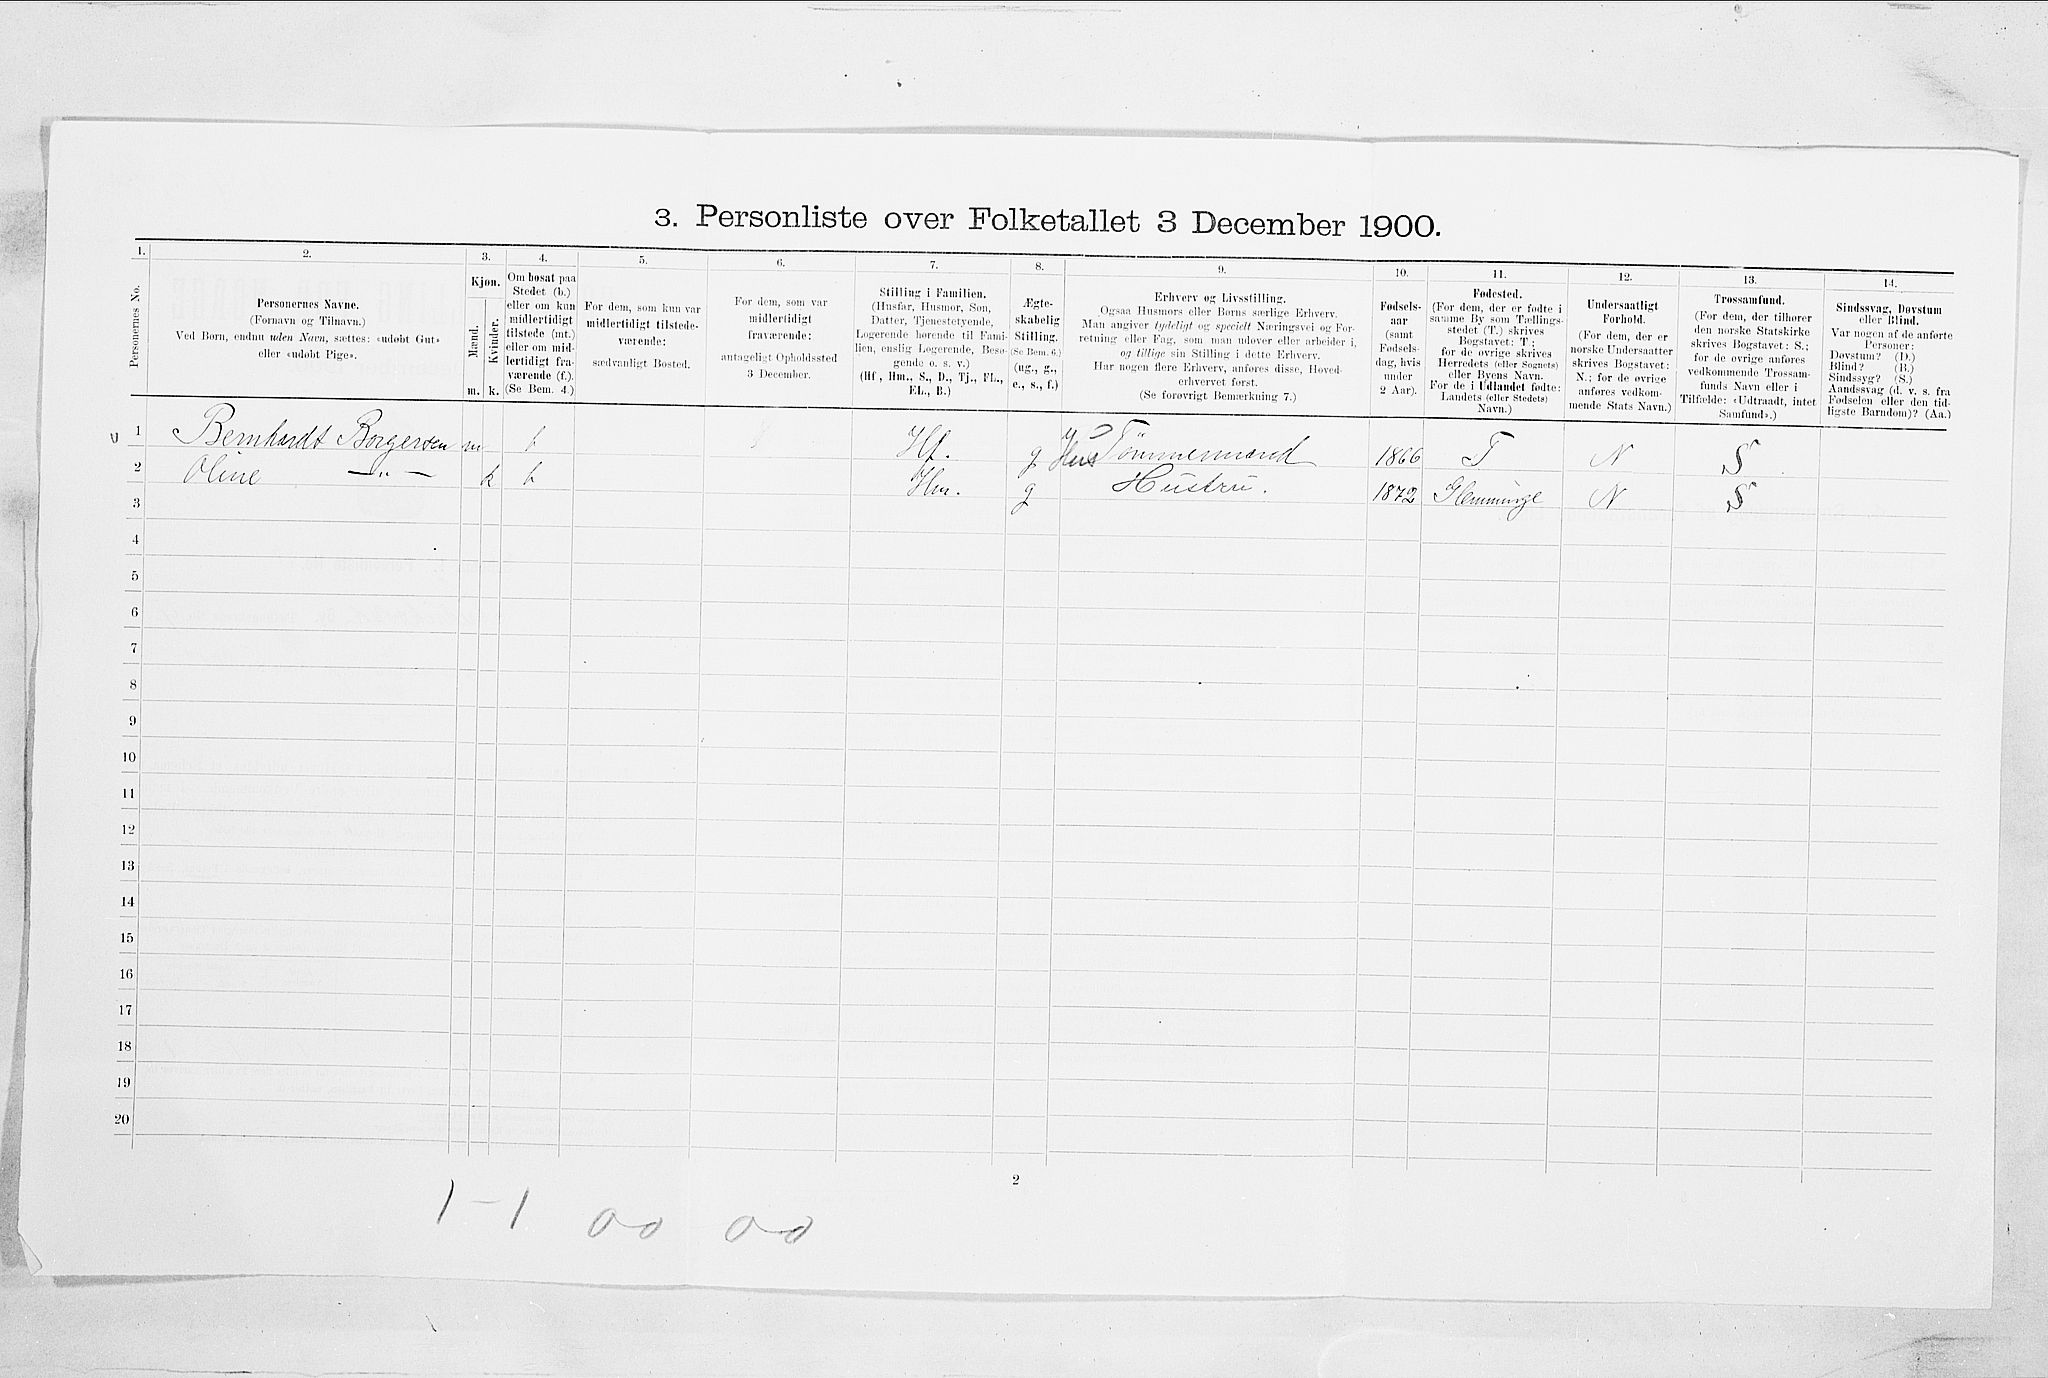 3. Personliste over Folketallet 3 December 1900.
1. 2. 3. 4. 5. 6. 7. 8. 9. 10. 11. 12. 13. 14.
Personernes No.
Personernes Navne.
(Fornavn og Tilnavn.)
Ved Børn, endnu uden Navn, sættes: «udøbt Gut»
eller «udøbt Pige».
Kjøn.
Mænd.
Kvinder.
m. k.
Om bosat paa
Stedet (b.)
eller om kun
midlertidigt
tilstede (mt.)
eller om mid-
lertidigt fra-
værende (f.).
(Se Bem. 4.)
For dem, som kun var
midlertidigt tilstede-
værende:
sædvanligt Bosted.
For dem, som var
midlertidigt
fraværende:
antageligt Opholdssted
3 December.
Stilling i Familien.
(Husfar, Husmor, Søn,
Datter, Tjenestetyende,
Logerende hørende til Fami-
lien, enslig Logerende, Besø-
gende o. s. v.)
(Hf., Hm., S., D., Tj., FL.,
EL., B.)
Ægte-
skabelig
Stilling.
(Se Bem. 6.)
(ug., g.,
e., s., f.)
Erhverv og Livsstilling.
Ogsaa Husmors eller Børns særlige Erhverv.
Man angiver tydeligt og specielt Næringsvei og For-
retning eller Fag, som man udøver eller arbeider i,
og tillige sin Stilling i dette Erhverv.
Har nogen flere Erhverv, anføres disse, Hoved-
erhvervet først.
(Se forøvrigt Bemærkning 7.)
Fødsels-
aar
(samt
Fødsels-
dag, hvis
under
2 Aar).
Fødested.
(For dem, der er fødte i
samme By som Tællings-
stedet (T.) skrives
Bogstavet: T.;
for de øvrige skrives
Herredets (eller Sognets)
eller Byens Navn.
For de i Udlandet fødte:
Landets (eller Stedets)
Navn.)
Undersaatligt
Forhold.
(For dem, der er
norske Undersaatter
skrives Bogstavet:
N.; for de øvrige
anføres vedkom-
mende Stats Navn.)
Trossamfund.
(For dem, der tilhører
den norske Statskirke
skrives Bogstavet: S.;
for de øvrige anføres
vedkommende Trossam-
funds Navn eller i
Tilfælde: «Udtraadt, intet
Samfund».)
Sindssvag, Døvstum
eller Blind.
Var nogen af de anførte
Personer:
Døvstum? (D.)
Blind? (B.)
Sindssyg? (S.)
Aandssvag (d. v. s. fra
Fødselen eller den tid-
ligste Barndom)? (Aa.)
1 Bernhardt Borgersen m b Hf. g Hus Tömmermand 1866 T N S
2 Oline —"— k b Hm. g Hustru. 1872 Glemminge N S
3
4
5
6
7
8
9
10
11
12
13
14
15
16
17
18
19
20
2
1-1 00 00